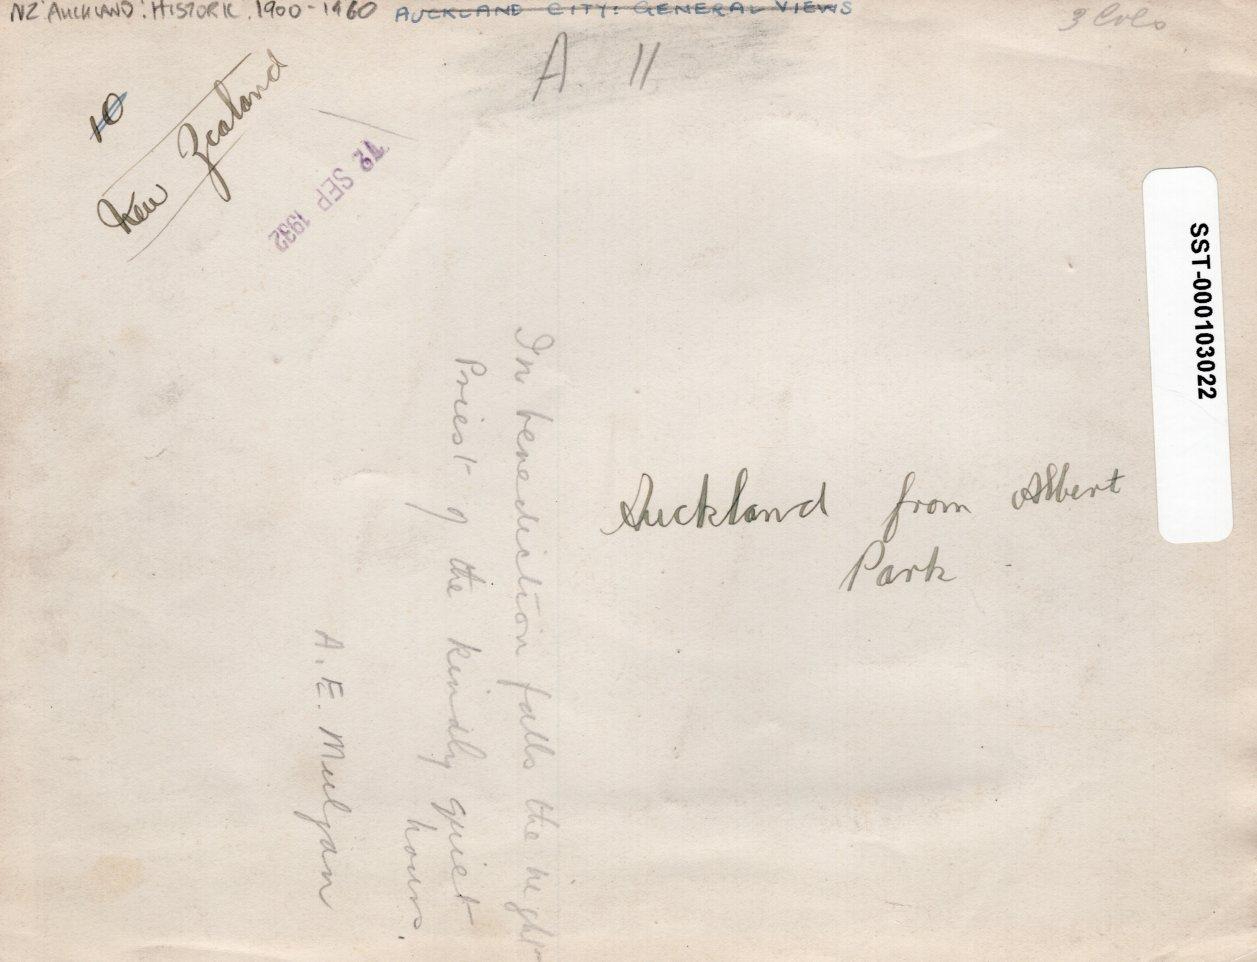 NZ: AUCKLAND: HISTORIC. 1900-1960
AUCKLAND CITY: GENERAL VIEWS
3 Cols
A. 11
10
New Zealand
12 SEP 1932
SST-000103022
Auckland from Albert
Park
In benediction falls the night
Priest of the kindly quiet
hours.
A. E. Mulgan